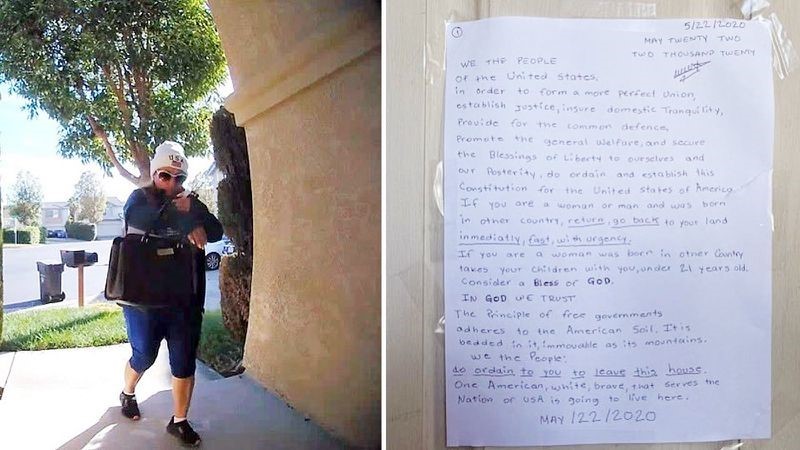 USA
①
5/22/2020
MAY TWENTY TWO
TWO THOUSAND TWENTY
WE THE PEOPLE
of the United States,
in order to form a more perfect Union,
establish Justice, insure domestic Tranquility,
Provide for the common defence,
Promote the general Welfare, and secure
the Blessings of Liberty to ourselves and
our Posterity, do ordain and establish this
Constitution for the United States of America.
If you are a woman or man and was born
in other country, return, go back to your land
inmediatly, fast, with urgency.
If you are a woman was born in other Country
takes your children with you, under 21 years old.
Consider a Bless of GOD.
IN GOD WE TRUST
The Principle of free governments
adheres to the American Soil. It is
bedded in it, immovable as its mountains.
We the People:
do ordain to you to leave this house.
One American, white, brave, that serves the
Nation or USA is going to live here.
MAY/22/2020